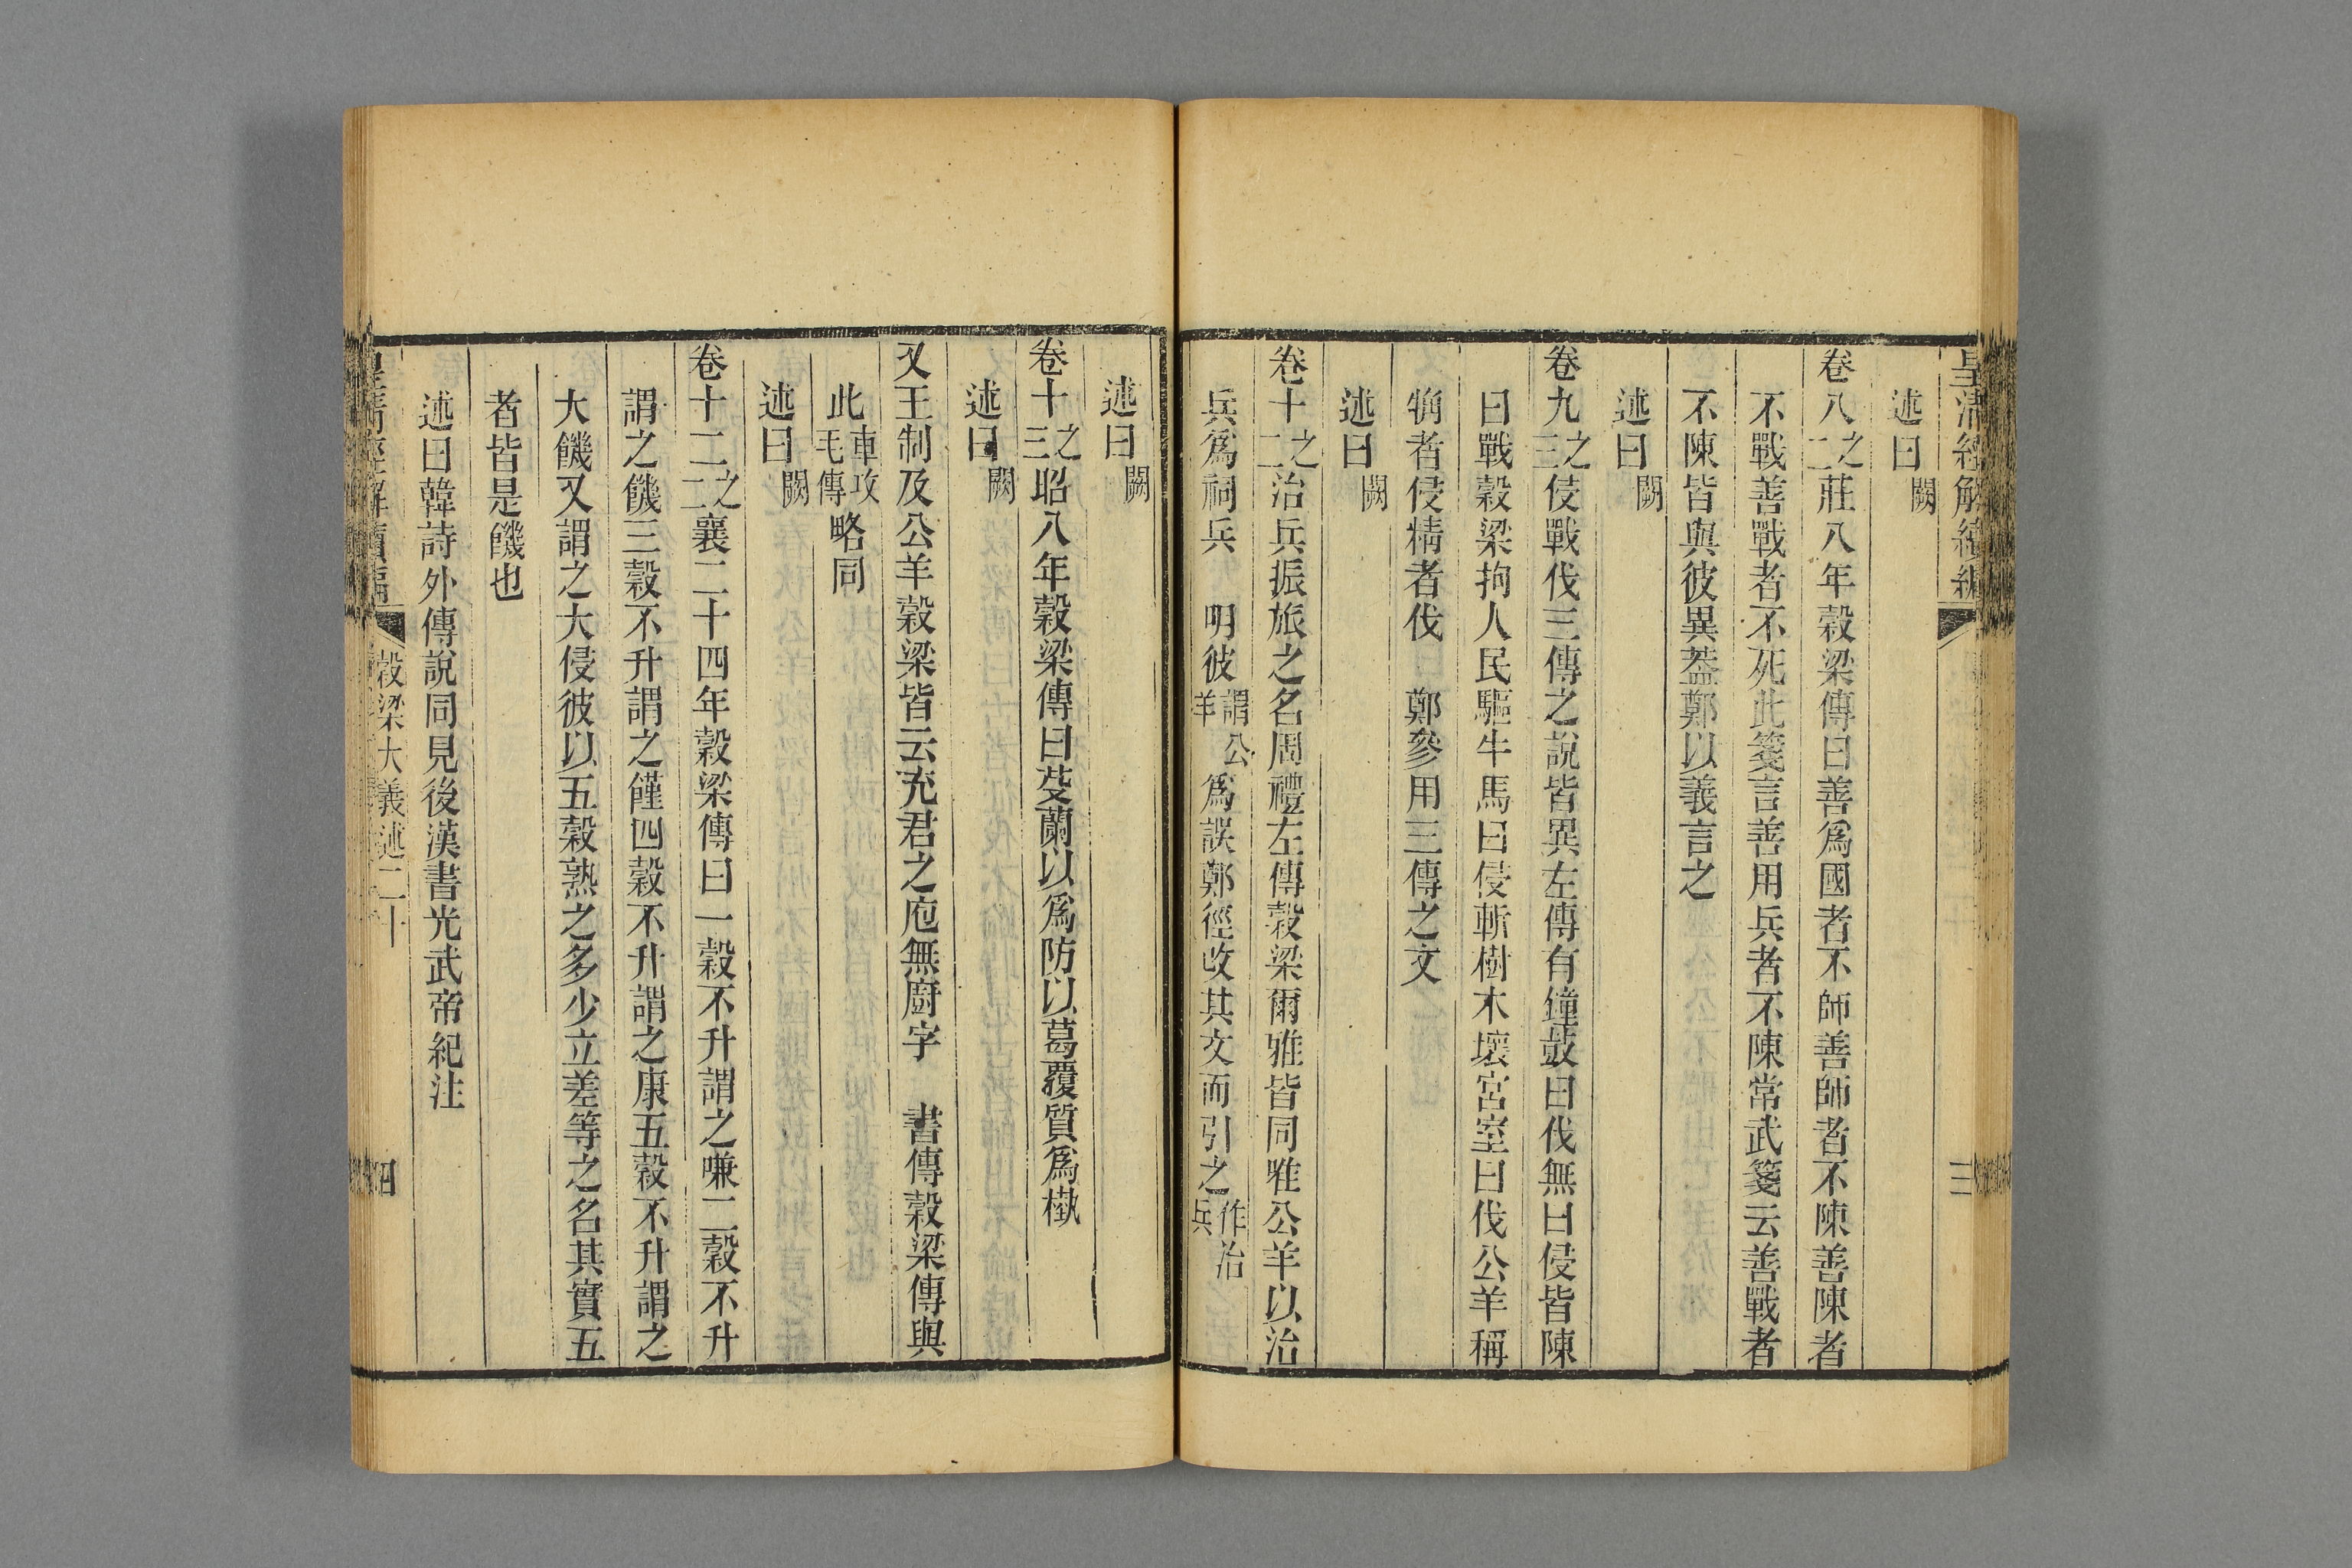 皇清經解續編
三
述曰闕
卷八之二莊八年穀梁傳曰善爲國者不師善師者不陳善陳者
不戰善戰者不死此箋言善用兵者不陳常武箋云善戰者
不陳皆與彼異葢鄭以義言之
述曰闕
卷九之三侵戰伐三傳之說皆異左傳有鐘鼓曰伐無曰侵皆陳
曰戰穀梁拘人民驅牛馬曰侵斬樹木壞宮室曰伐公羊稱
觕者侵精者伐　鄭參用三傳之文
述曰闕
卷十之二治兵振旅之名周禮左傳穀梁爾雅皆同唯公羊以治
兵爲祠兵　明彼謂公羊爲誤鄭徑改其文而引之作治兵
述曰闕
卷十之三昭八年穀梁傳曰芟蘭以爲防以葛覆質爲槸
述曰闕
又王制及公羊穀梁皆云充君之庖無廚字　書傳穀梁傳與
此車攻毛傳略同
述曰闕
卷十二之二襄二十四年穀梁傳曰一穀不升謂之嗛二穀不升
謂之饑三穀不升謂之饉四穀不升謂之康五穀不升謂之
大饑又謂之大侵彼以五穀熟之多少立差等之名其實五
者皆是饑也
述曰韓詩外傳說同見後漢書光武帝紀注
皇清經解續編
穀梁大義述二十
四